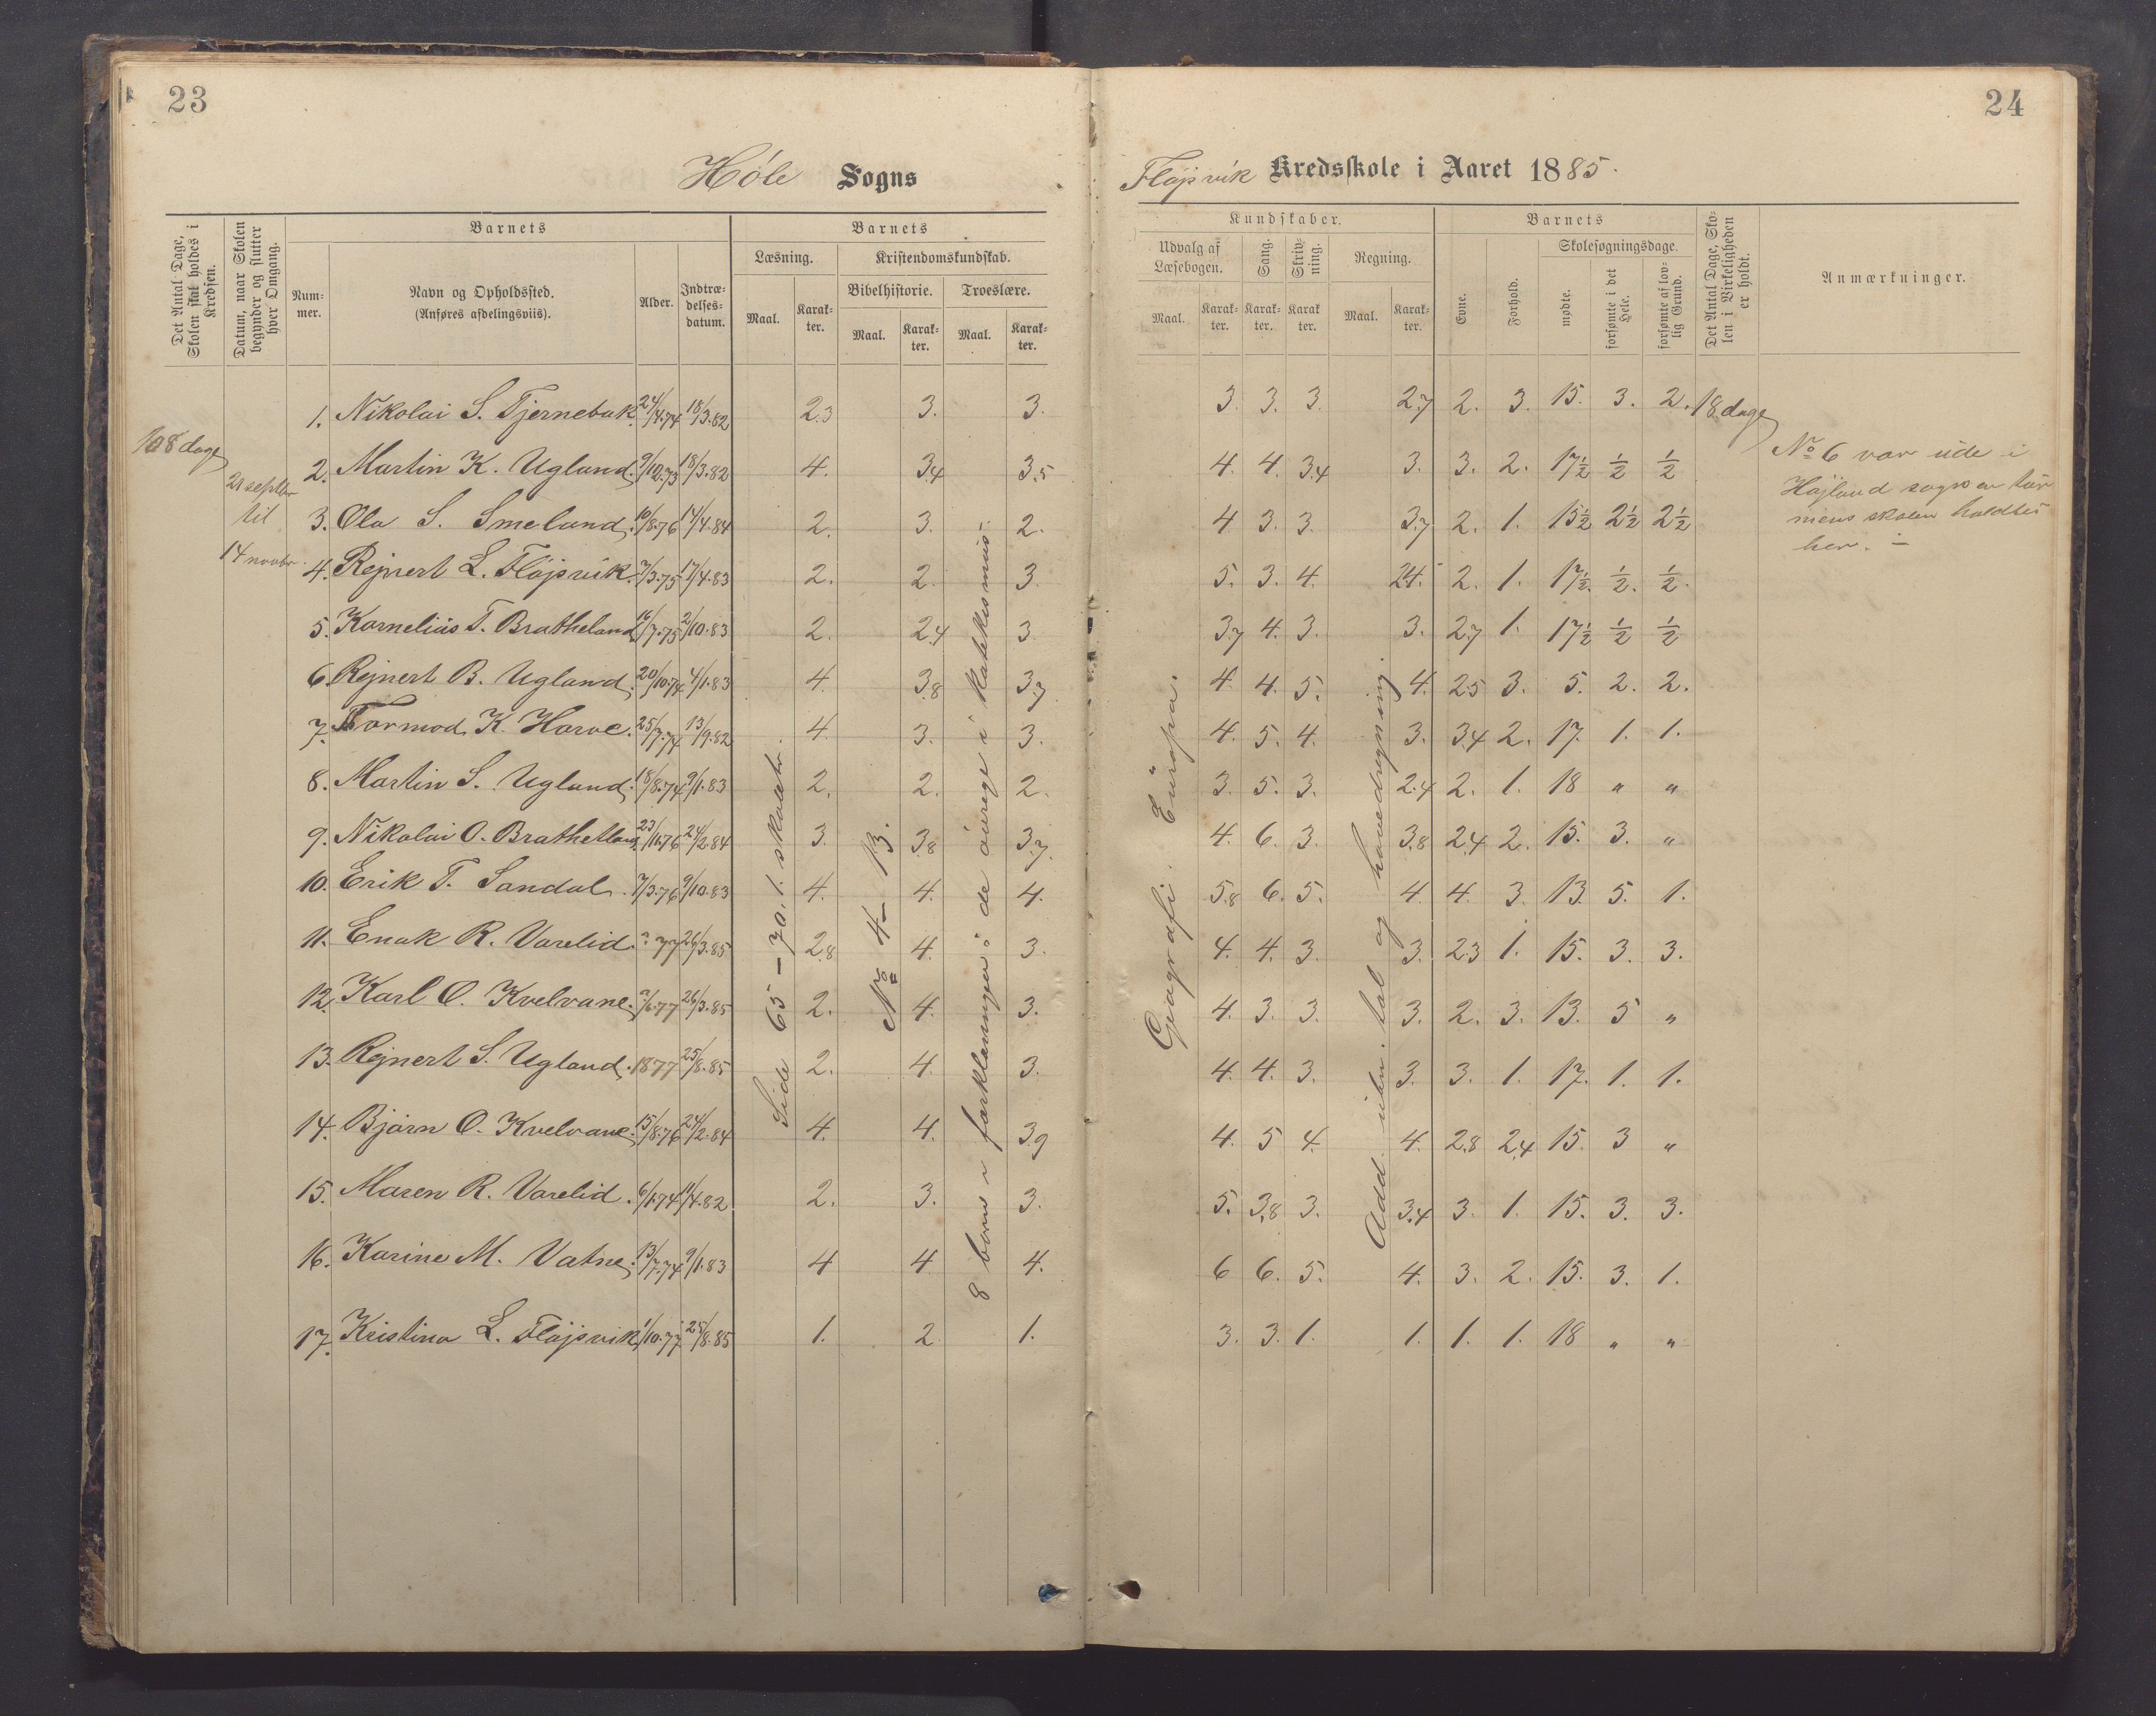 23
24
Höle Sogns
Fløjsvik Kredsskole i Aaret 1885.
Det Antal Dage, Skolen skal holdes i Kredsen.
Datum, naar Skolen begynder og slutter hver Omgang.
Barnets
Nummer.
Navn og Opholdssted.
(Anføres afdelingsviis).
Alder.
Indtrædelsesdatum.
Barnets
Læsning.
Kristendomskundskab.
Bibelhistorie.
Troeslære.
Maal. Karakter. Maal. Karakter. Maal. Karakter.
Kundskaber.
Udvalg af Læsebogen.
Sang.
Skrivning.
Regning.
Maal. Karakter. Karakter. Karakter. Maal. Karakter.
Barnets
Evne.
Forhold.
Skolesøgningsdage.
mødte.
forsømte i det Hele.
forsømte af lovlig Grund.
Det Antal Dage, Skolen i Virkeligheden er holdt.
Anmærkninger.
108 dage
21 septbr
til
14 novbr
1. Nikolai S. Tjernebak. 24/4.74 18/3.82 2.3 3. 3. 3. 3. 3. 2.7 2. 3. 15. 3. 2. 18 dage
2. Martin K. Ugland. 9/10.73 18/3.82 4. 3.4 3.5 4. 4. 3.4 3. 3. 2. 17½ ½ ½
3. Ola S. Smeland. 10/8.76 17/4.84 2. 3. 2. 4 3. 3. 3.7 2. 1. 15½ 2½ 2½
4. Rejnert L. Fløjsvik. 7/3.75 17/4.83 2. 2. 3. 5. 3. 4. 2.4. 2. 1. 17½. ½. ½.
5. Kornelius T. Bratheland 16/7.75 2/10.83 2. 2.4 3 3.7 4. 3. 3. 2.7 1. 17½ ½ ½
6. Rejnert B. Ugland. 20/10.74 4/1.83 4. 3.8 3.7 4. 4. 5. 4. 2.5 3. 5. 2. 2.
7. Tormod K. Harve. 25/7.74 13/9.82 4. 3. 3. 4. 5. 4. 3. 3.4 2. 17. 1. 1.
8. Martin S. Ugland. 18/8.74 9/1.83 2. 2. 2. 3. 5. 3. 2.4 2. 1. 18 " "
9. Nikolai O. Brathetland 23/11.76 24/2.84 3. 3.8 3.7. 4. 6. 3. 3.8 2.4 2. 15. 3. "
10. Erik T. Sandal. 7/3.76 9/10.83 4. 4. 4. 5.8 6. 5. 4 4. 3. 13. 5. 1.
11. Enok R. Varelid. ". 77 26/3.85 2.8 4. 3. 4. 4. 3 3. 2.3 1. 15. 3. 3.
12. Karl O. Kvelvane. "/6.77 26/3.85 2. 4. 3. 4. 3. 3. 3. 2. 3. 13. 5 "
13. Rejnert S. Ugland. 1877 25/8.85 2. 4. 3. 4. 4. 3. 3. 3. 1. 17. 1. 1.
14. Bjørn O. Kvelvane. 15/8.76 24/2.84 4. 4. 3.9 4. 5 4. 4. 2.8 2.4 15. 3 "
15. Maren R. Varelid. 6/1.74 11/4.82 2. 3. 3. 5. 3.8 3. 3.4 3. 1. 15. 3. 3.
16. Karine M. Vatne. 13/7.74 9/1.83 4 4 4. 6 6. 5. 4. 3. 2. 15. 3. 1.
17. Kristina L. Fløjsvik. 1/10.77 25/8.85 1. 2 1. 3. 3. 1. 1. 1. 1. 18 " "
Side 65 – 70. 1. skoletr.
No 4 – 13.
8 børn i forklaringen; de øvrege i katekismus.
Geografi: Europa.
Add. uten. tal og hovedregning
No 6 var ude i
Højland sogn en tur
mens skolen holdtes
her. –